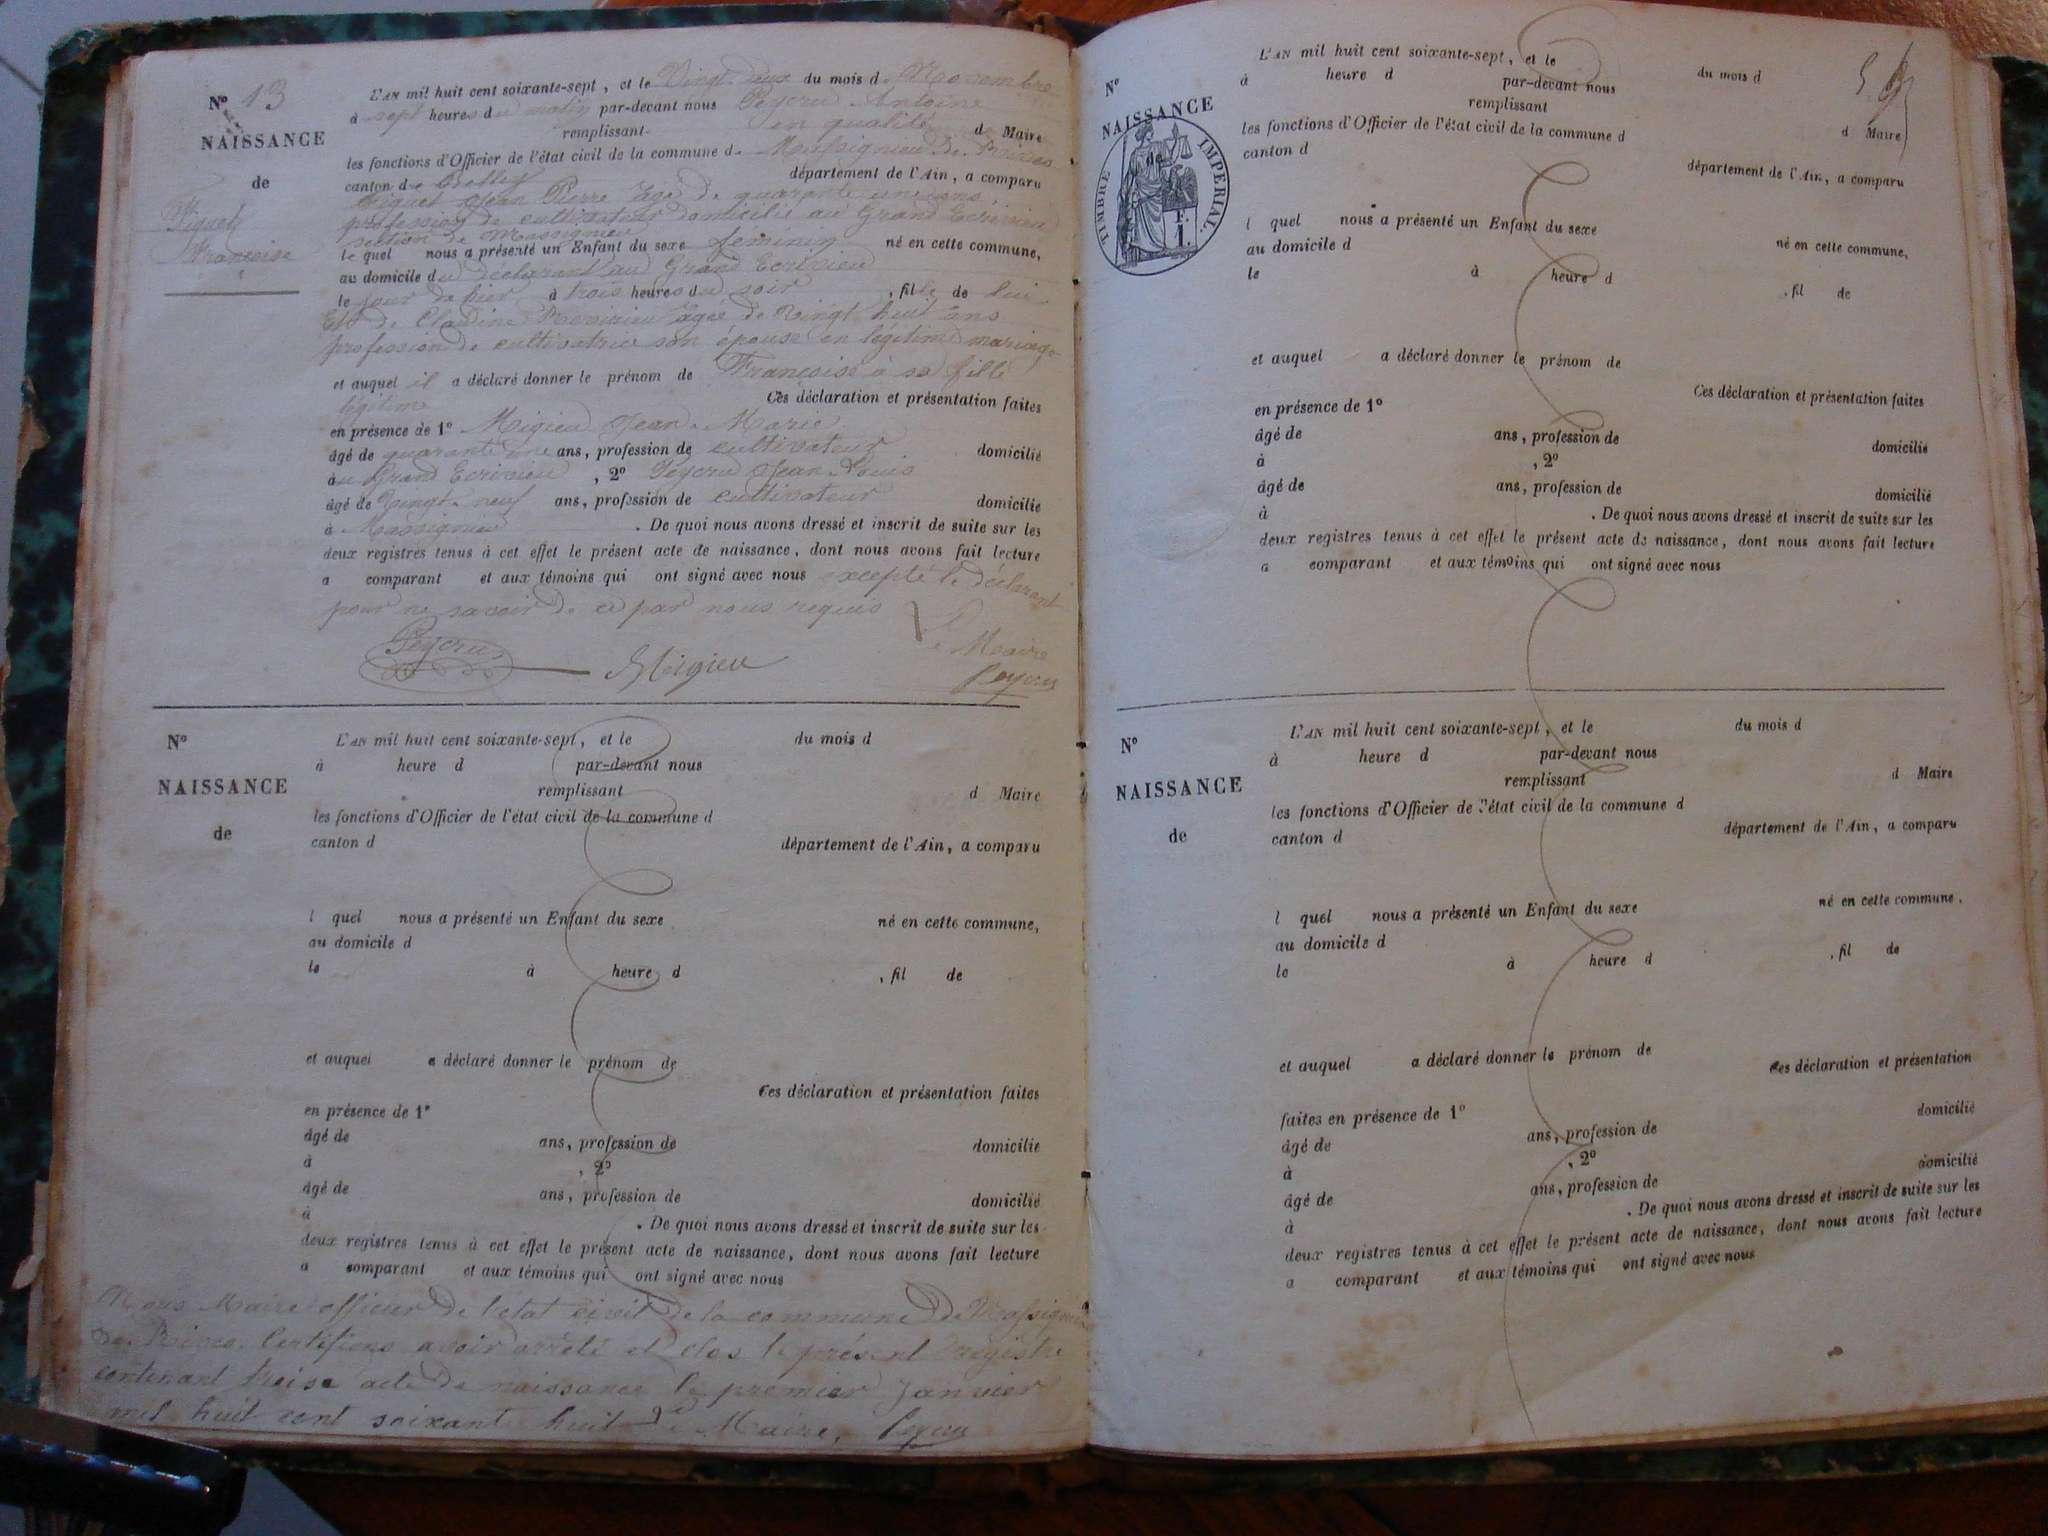 N° 13
NAISSANCE
de
Piquet
Françoise
L'AN mil huit cent soixante-sept, et le Vingt deux du mois de Novembre
à sept heures du matin par-devant nous Peycru Antoine
remplissant en qualité d Maire
les fonctions d'Officier de l'état civil de la commune de Massignieu de Rives
canton de Belley département de l'Ain, a comparu
Piquet Jean Pierre âgé de quarante un ans
profession de cultivateur domicilié au Grand Ecrivieu
section de Massignieu
le quel nous a présenté un Enfant du sexe féminin né en cette commune,
au domicile du déclarant au Grand Ecrivieu
le jour de hier à trois heures du soir, fille de lui
Et de Claudine âgée de Vingt huit ans
profession de cultivatrice son épouse en légitime mariage
et auquel il a déclaré donner le prénom de Françoise à sa fille
légitime Ces déclaration et présentation faites
en présence de 1° Migieu Jean Marie
âgé de quarante une ans, profession de cultivateur domicilié
au Grand Ecrivieu, 2° Peycru Jean Louis
âgé de Vingt neuf ans, profession de cultivateur domicilié
à Massignieu. De quoi nous avons dressé et inscrit de suite sur les
deux registres tenus à cet effet le présent acte de naissance, dont nous avons fait lecture
a comparant et aux témoins qui ont signé avec nous excepté le déclarant
pour ne savoir de ce par nous requis
Le Maire
Peycru Migieu Peycru
N°
NAISSANCE
de
L'AN mil huit cent soixante-sept, et le du mois d
à heure d par-devant nous
remplissant d Maire
les fonctions d'Officier de l'état civil de la commune d
canton d département de l'Ain, a comparu
l quel nous a présenté un Enfant du sexe né en cette commune,
au domicile d
le à heure d , fil de
et auquel a déclaré donner le prénom de
Ces déclaration et présentation faites
en présence de 1°
âgé de ans, profession de domicilié
à , 2°
âgé de ans, profession de domicilié
à . De quoi nous avons dressé et inscrit de suite sur les
deux registres tenus à cet effet le présent acte de naissance, dont nous avons fait lecture
a comparant et aux témoins qui ont signé avec nous
Nous Maire officier de l'état civil de la commune de Massignieu
de Rives Certifions avoir arrêté et clos le présent régistre
contenant treise acte de naissance le premier Janvier
mil huit cent soixante huit Le Maire, Peycru
N°
NAISSANCE
de
TIMBRE IMPERIAL.
L'AN mil huit cent soixante-sept, et le du mois d
à heure d par-devant nous
remplissant d Maire
les fonctions d'Officier de l'état civil de la commune d
canton d département de l'Ain, a comparu
l quel nous a présenté un Enfant du sexe né en cette commune,
au domicile d
le à heure d , fil de
et auquel a déclaré donner le prénom de
Ces déclaration et présentation faites
en présence de 1°
âgé de ans, profession de domicilié
à , 2°
âgé de ans, profession de domicilié
à . De quoi nous avons dressé et inscrit de suite sur les
deux registres tenus à cet effet le présent acte de naissance, dont nous avons fait lecture
a comparant et aux témoins qui ont signé avec nous
N°
NAISSANCE
de
L'AN mil huit cent soixante-sept, et le du mois d
à heure d par-devant nous
remplissant d Maire
les fonctions d'Officier de l'état civil de la commune d
canton d département de l'Ain, a comparu
l quel nous a présenté un Enfant du sexe né en cette commune,
au domicile d
le à heure d , fil de
et auquel a déclaré donner le prénom de
Ces déclaration et présentation
faites en présence de 1°
âgé de ans, profession de domicilié
à , 2°
âgé de ans, profession de domicilié
à . De quoi nous avons dressé et inscrit de suite sur les
deux registres tenus à cet effet le présent acte de naissance, dont nous avons fait lecture
a comparant et aux témoins qui ont signé avec nous